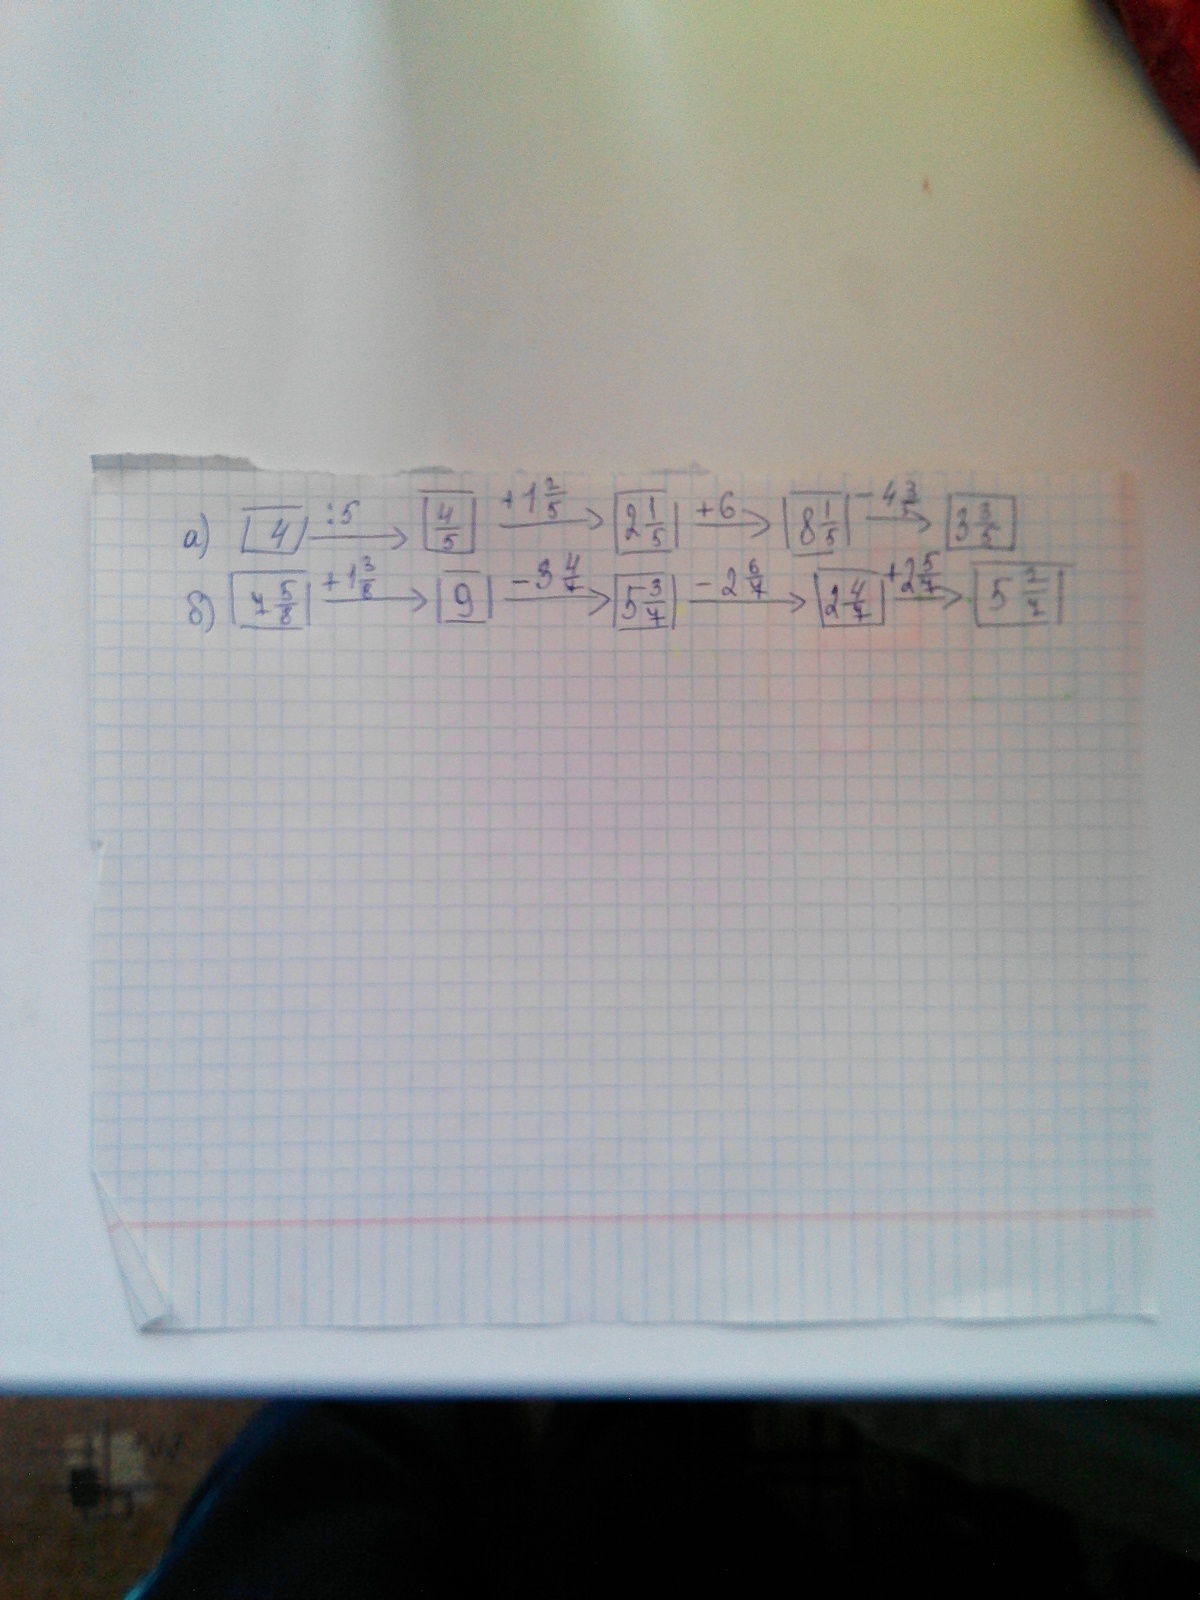 а) 4 :5 → 4/5 +1 2/5 → 2 1/5 +6 → 8 1/5 -4 3/5 → 3 3/5
б) 7 5/8 +1 3/8 → 9 -3 4/7 → 5 3/7 -2 6/7 → 2 4/7 +2 5/7 → 5 2/7